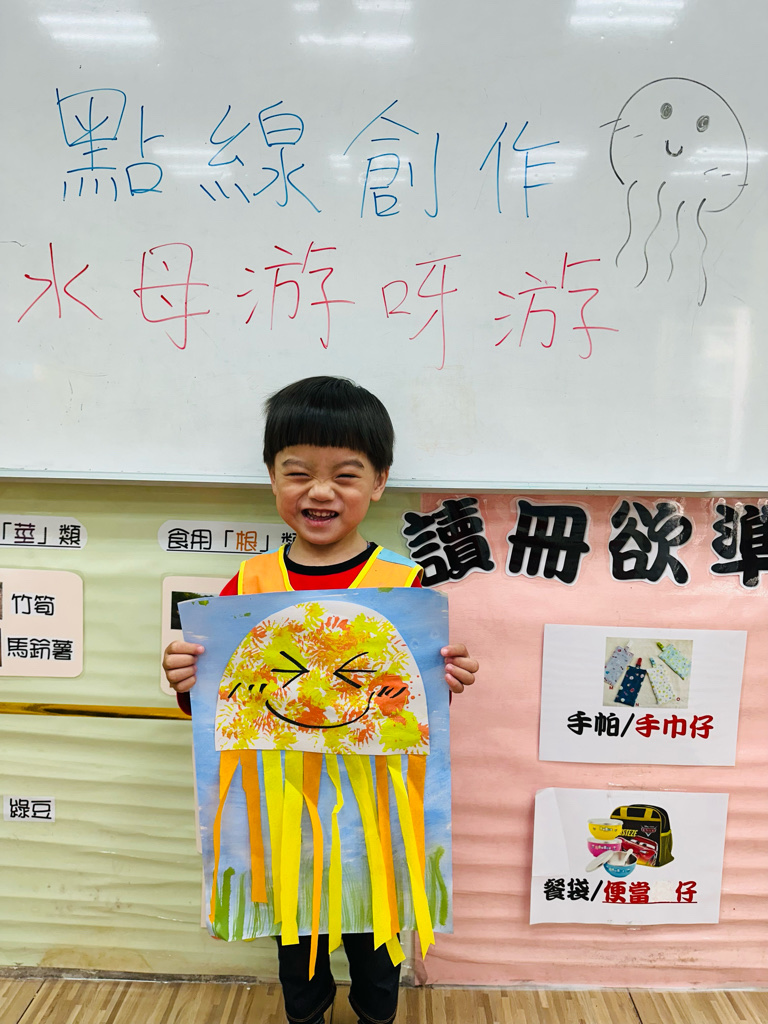 點線創作
水母游呀游
「莖」類
食用「根」類
讀冊欲準
竹筍
馬鈴薯
手帕/手巾仔
綠豆
餐袋/便當 仔